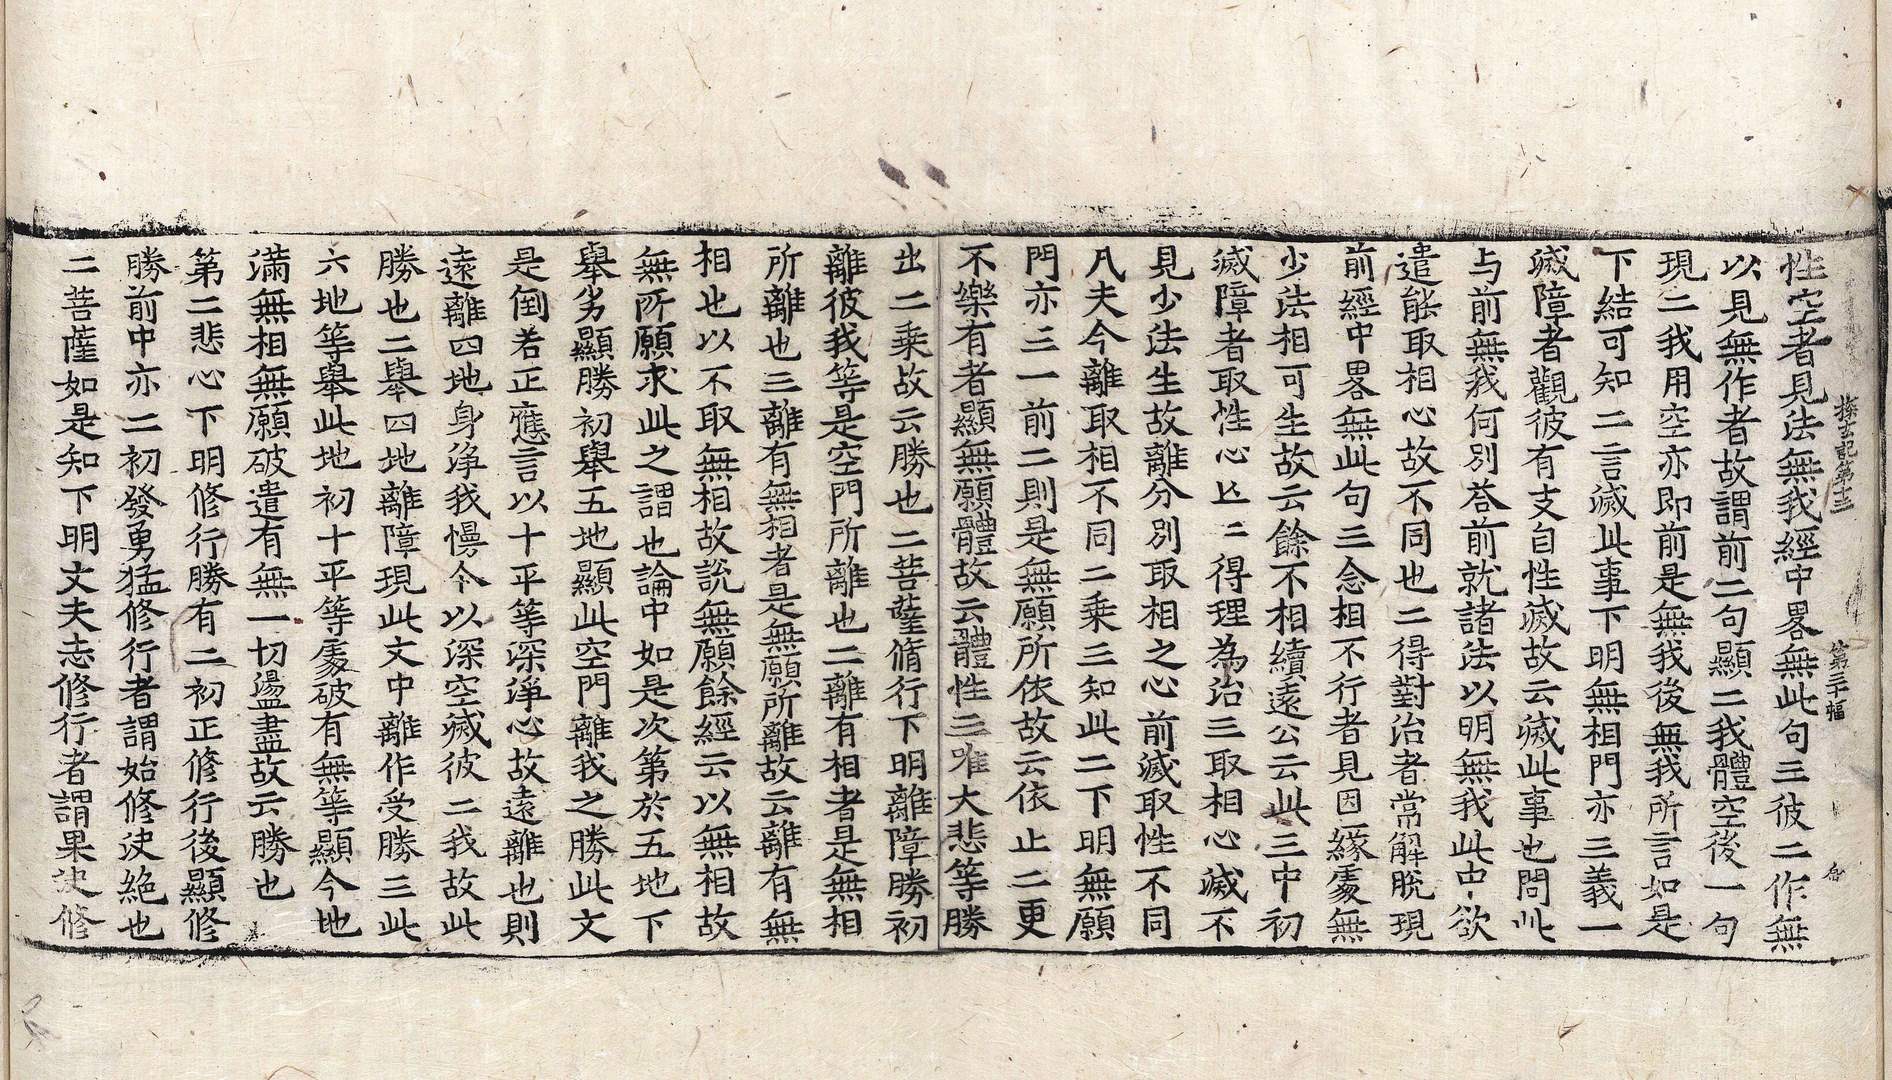 探玄記第十三　第三十幅　
性空者見法無我經中畧無此句三彼二作無
以見無作者故謂前二句顯二我體空後一句
現二我用空亦即前是無我後無我所言如是
下結可知二言滅此事下明無相門亦三義一
滅障者觀彼有支自性滅故云滅此事也問此
与前無我何別荅前就諸法以明無我此中欲
遣能取相心故不同也二得對治者常解脫現
前經中畧無此句三念相不行者見因緣處無
少法相可生故云餘不相續遠公云此三中初
滅障者取性心亡二得理為治三取相心滅不
見少法生故離分別取相之心前滅取性不同
凡夫今離取相不同二乗三知此二下明無願
門亦三一前二則是無願所依故云依止二更
不樂有者顯無願體故云體性三唯大悲等勝
出二乗故云勝也二菩薩脩行下明離障勝初
離彼我等是空門所離也二離有相者是無相
所離也三離有無相者是無願所離故云離有無
相也以不取無相故說無願餘經云以無相故
無所願求此之謂也論中如是次第於五地下
舉劣顯勝初舉五地顯此空門離我之勝此文
是倒若正應言以十平等深淨心故遠離也則
遠離四地身淨我慢今以深空滅彼二我故此
勝也二舉四地離障現此文中離作受勝三此
六地等舉此地初十平等處破有無等顯今地
滿無相無願破遣有無一切盪盡故云勝也
第二悲心下明修行勝有二初正修行後顯修
勝前中亦二初發勇猛修行者謂始修決絕也
二菩薩如是知下明丈夫志修行者謂果決修